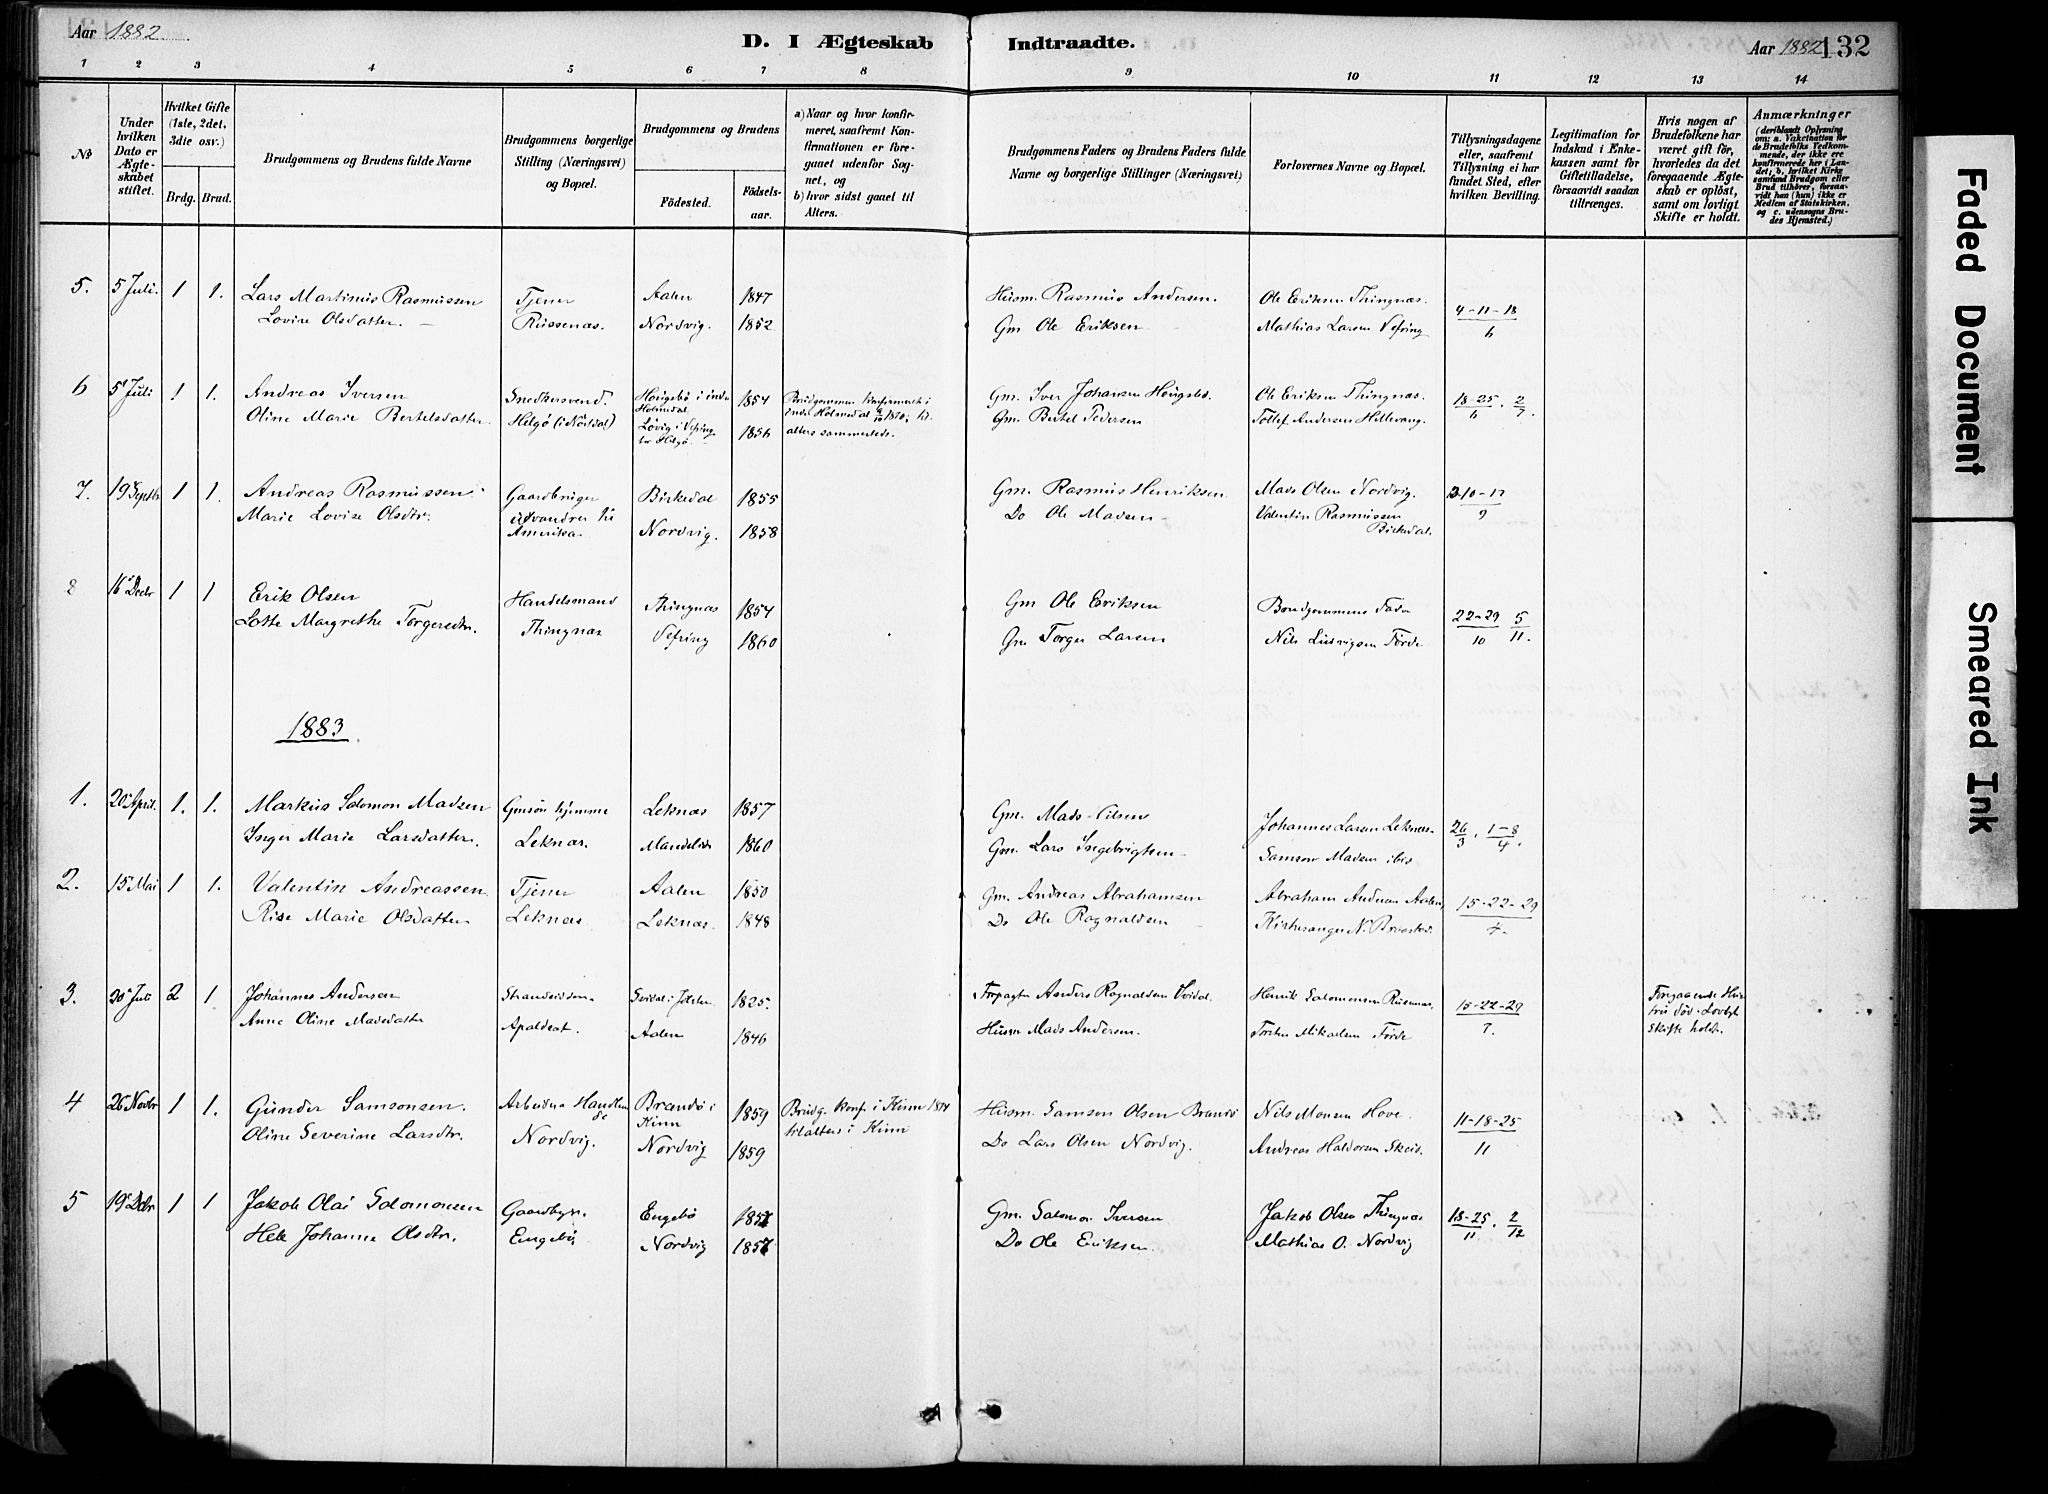 Aar 1882.
D. I Ægteskab Indtraadte.
Aar 1882 132
1 2 3 4 5 6 7 8 9 10 11 12 13 14
№
Under hvilken Dato er Ægteskabet stiftet.
Hvilket Gifte (1ste, 2det, 3die osv.)
Brdg. Brud.
Brudgommens og Brudens fulde Navne
Brudgommens borgerlige Stilling (Næringsvei) og Bopæl.
Brudgommens og Brudens
Fødested. Fødselsaar.
a) Naar og hvor konfirmeret, saafremt Konfirmationen er foregaaet udenfor Sognet, og
b) hvor sidst gaaet til Alters.
Brudgommens Faders og Brudens Faders fulde Navne og borgerlige Stillinger (Næringsvei)
Forlovernes Navne og Bopæl.
Tillysningsdagene eller, saafremt Tillysning ei har fundet Sted, efter hvilken Bevilling.
Legitimation for Indskud i Enkekassen samt for Giftetilladelse, forsaavidt saadan tiltrænges.
Hvis nogen af Brudefolkene har været gift før, hvorledes da det foregaaende Ægteskab er opløst, samt om lovligt Skifte er holdt.
Anmærkninger
(deriblandt Oplysning om: a. Vakcination for de Brudefolks Vedkommende, der ikke ere konfirmerede her i Landet; b. hvilket Kirkesamfund Brudgom eller Brud tilhører, forsaavidt han (hun) ikke er Medlem af Statskirken, og c. udensogns Brudes Hjemsted.)
5. 5 Juli. 1 1. Lars Martinus Rasmussen Tjener Aalen 1847 Husm. Rasmus Andersen. Ole Eriksen Thingnæs. 4-11-18
Lovise Olsdatter. Russenæs. Nordvig. 1852 Gm Ole Eriksen Mathias Larsen Vefring 6
6 5 Juli 1 1. Andreas Iversen Snedkersvend. 1854 Brudgommen konfirmeret i Gm. Iver Johansen Ole Eriksen Thingnæs. 18-25 2
Oline Marie Bertelsdatter Helgö 1856 alters sammesteds. Gm. Bertel Pedersen Tollef Andersen Hellevang. 6 7.
7. 19 Septbr 1 1. Andreas Rasmussen Gaardbruger Birkedal 1855 Gm. Rasmus Henriksen Mads Olsen Nordvig. 3-10-17
Marie Lovise Olsdtr. udvandrer til Amerika Nordvig. 1858 Do Ole Madsen Valentin Rasmussen Birkedal. 9
8 16 Decbr 1 1 Erik Olsen Handelsmand Thingnæs 1854 Gm Ole Eriksen Brudgommens Fader 22-29 5
Lotte Margrethe Torgersdtr. Thingnæs Vefring 1860 Gm Torger Larsen Nils Ludvigsen Förde 10 11.
1883.
1. 20 April. 1. 1. Markus Salomon Madsen Gmsön hjemme Leknæs 1857 Gm. Mads Nilsen Johannes Larsen Leknæs 26 1-8
Inger Marie Larsdatter. Leknæs. 1860 Gm. Lars Ingebrigtsen Samson Madsen ibid 3 4.
2. 15 Mai 1 1. Valentin Andreassen Tjener Aalen 1850 Gm. Andreas Abrahamsen Abraham Andersen Aalen 15-22-29
Rise Marie Olsdatter Leknæs. Leknæs. 1848 Do Ole Ragnaldsen Kirkesanger N. 4.
3. 30 Juli 2 1. Johannes Andersen Strandsidder 1825. Anders Ragnaldsen Henrik Salomonsen Russenæs. 15-22-29 Foregaaende Hustru död. Lovligt Skifte holdt.
Anne Oline Madsdatter Apaldset. Aalen 1846 Husm Mads Andersen. Torsten Mikaelsen Förde 7.
4 26 Novbr 1 1. Gunder Samsonsen. Arbeider Brandö i Kinn 1859 Brudg. konf. i Kinn 1874 Husm. Samson Olsen Brandö Nils Monsen Hove. 11-18-25
Oline Severine Larsdtr. Nordvig. Nordvig 1859 til alters i Kinn Do Lars Olsen Nordvig. Andreas Haldorsen Skeid. 11
5 19 Decbr 1 1 Jakob Olai Salomonsen Gaardbgr. Engebö 1857 Gm. Salomon Iversen Jakob Olsen Thingnæs 18-25 2
Johanne Olsdtr. Engebö Nordvig 1857 Do Ole Eriksen. Mathias O. Nordvig 11 12
Faded Document
Smeared Ink